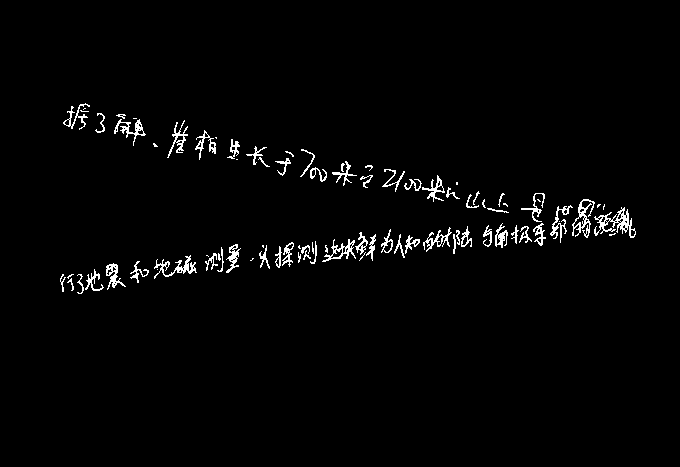 据了解、崖柏生长于700米至2100米的山上是世界
行了地震和地磁测量.以探测这块鲜为人知的大陆与南极东部的